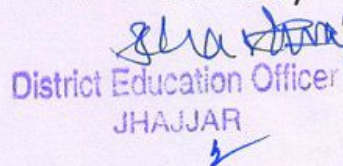 District Education Officer
JHAJJAR